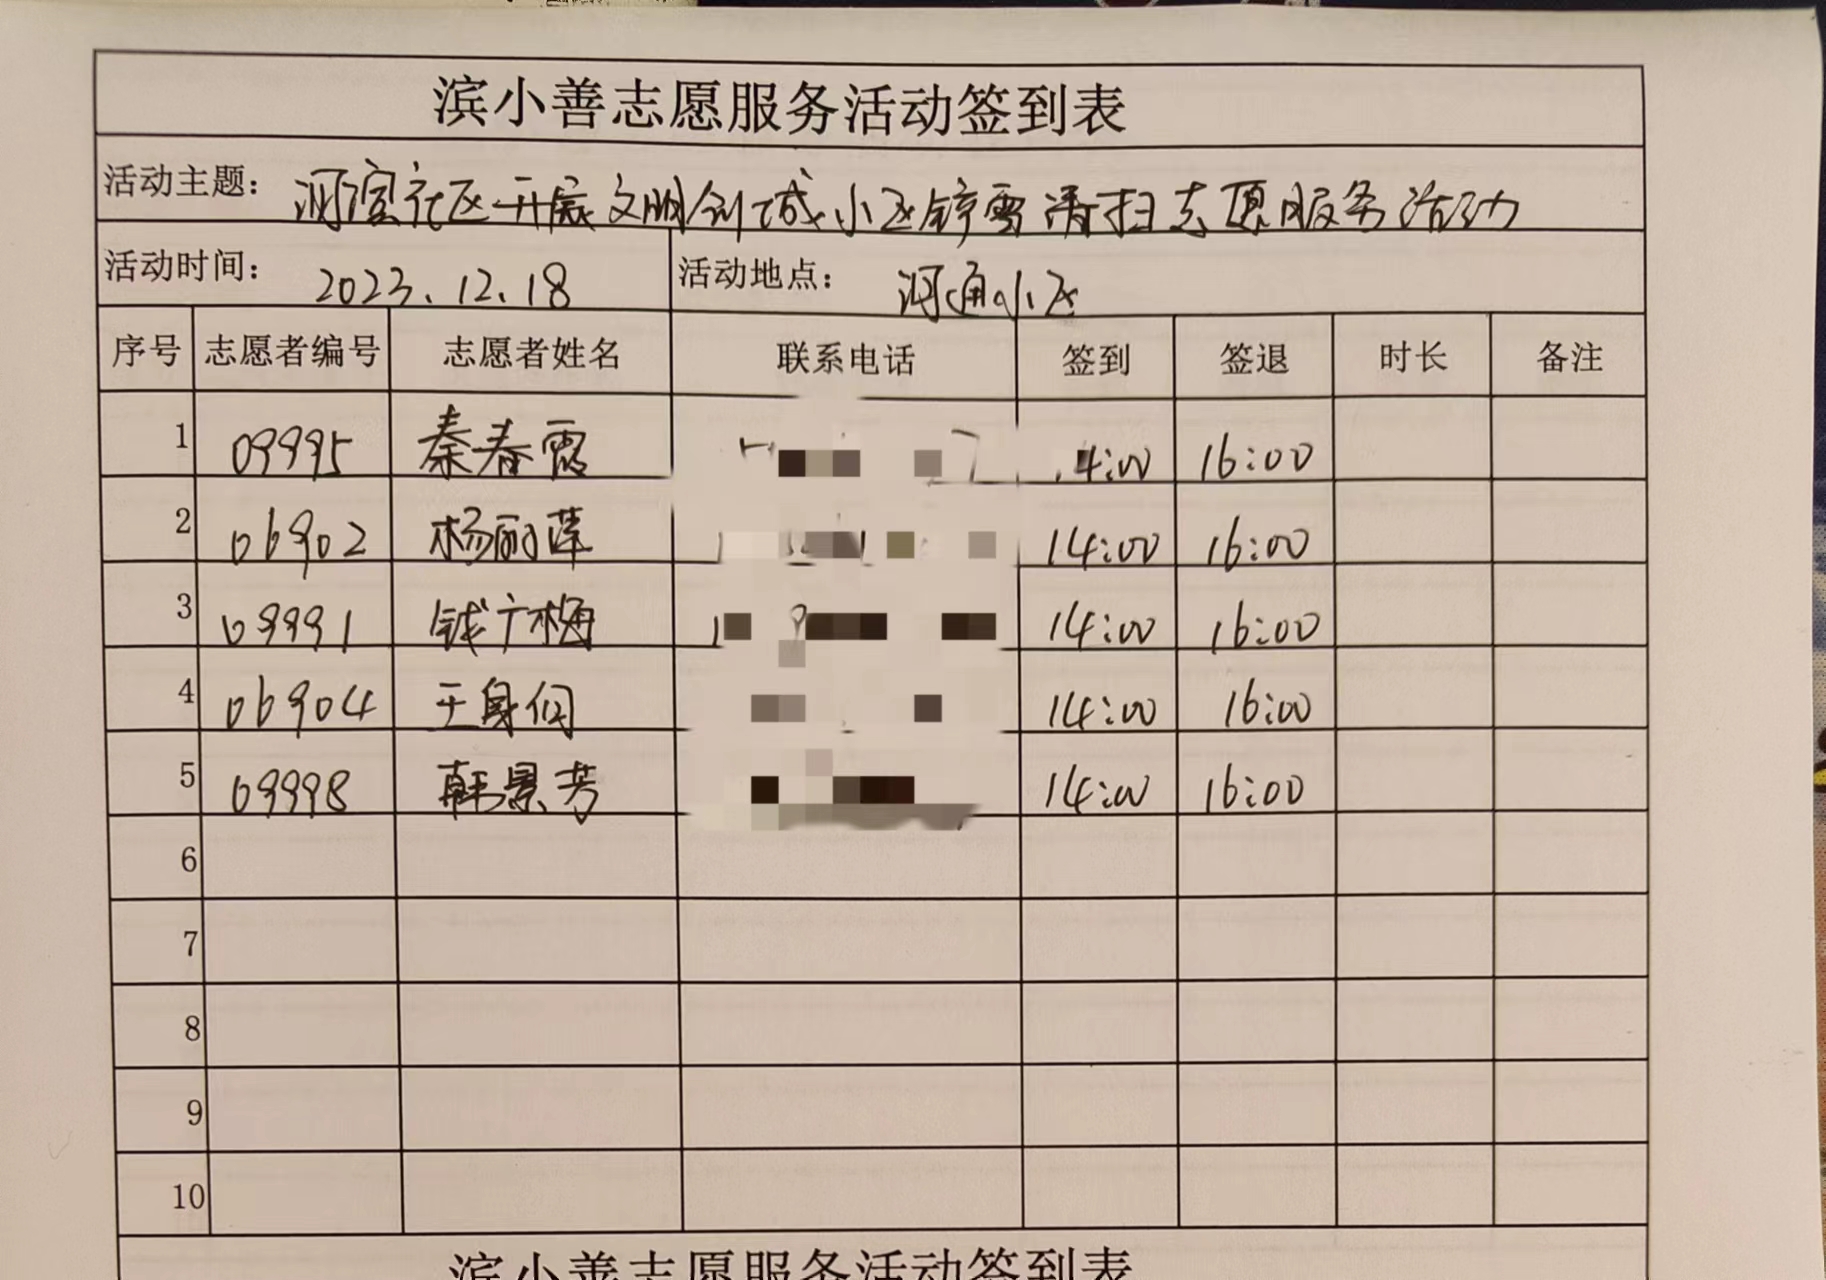 滨小善志愿服务活动签到表
活动主题： 河滨社区开展文明创城小区铲雪清扫志愿服务活动
活动时间： 2023.12.18 活动地点： 河通小区
序号 志愿者编号 志愿者姓名 联系电话 签到 签退 时长 备注
1 09995 秦春霞 14:00 16:00
2 06902 杨丽萍 14:00 16:00
3 09991 钱广梅 14:00 16:00
4 06904 王身伺 14:00 16:00
5 09998 韩景芳 14:00 16:00
6
7
8
9
10
滨小善志愿服务活动签到表